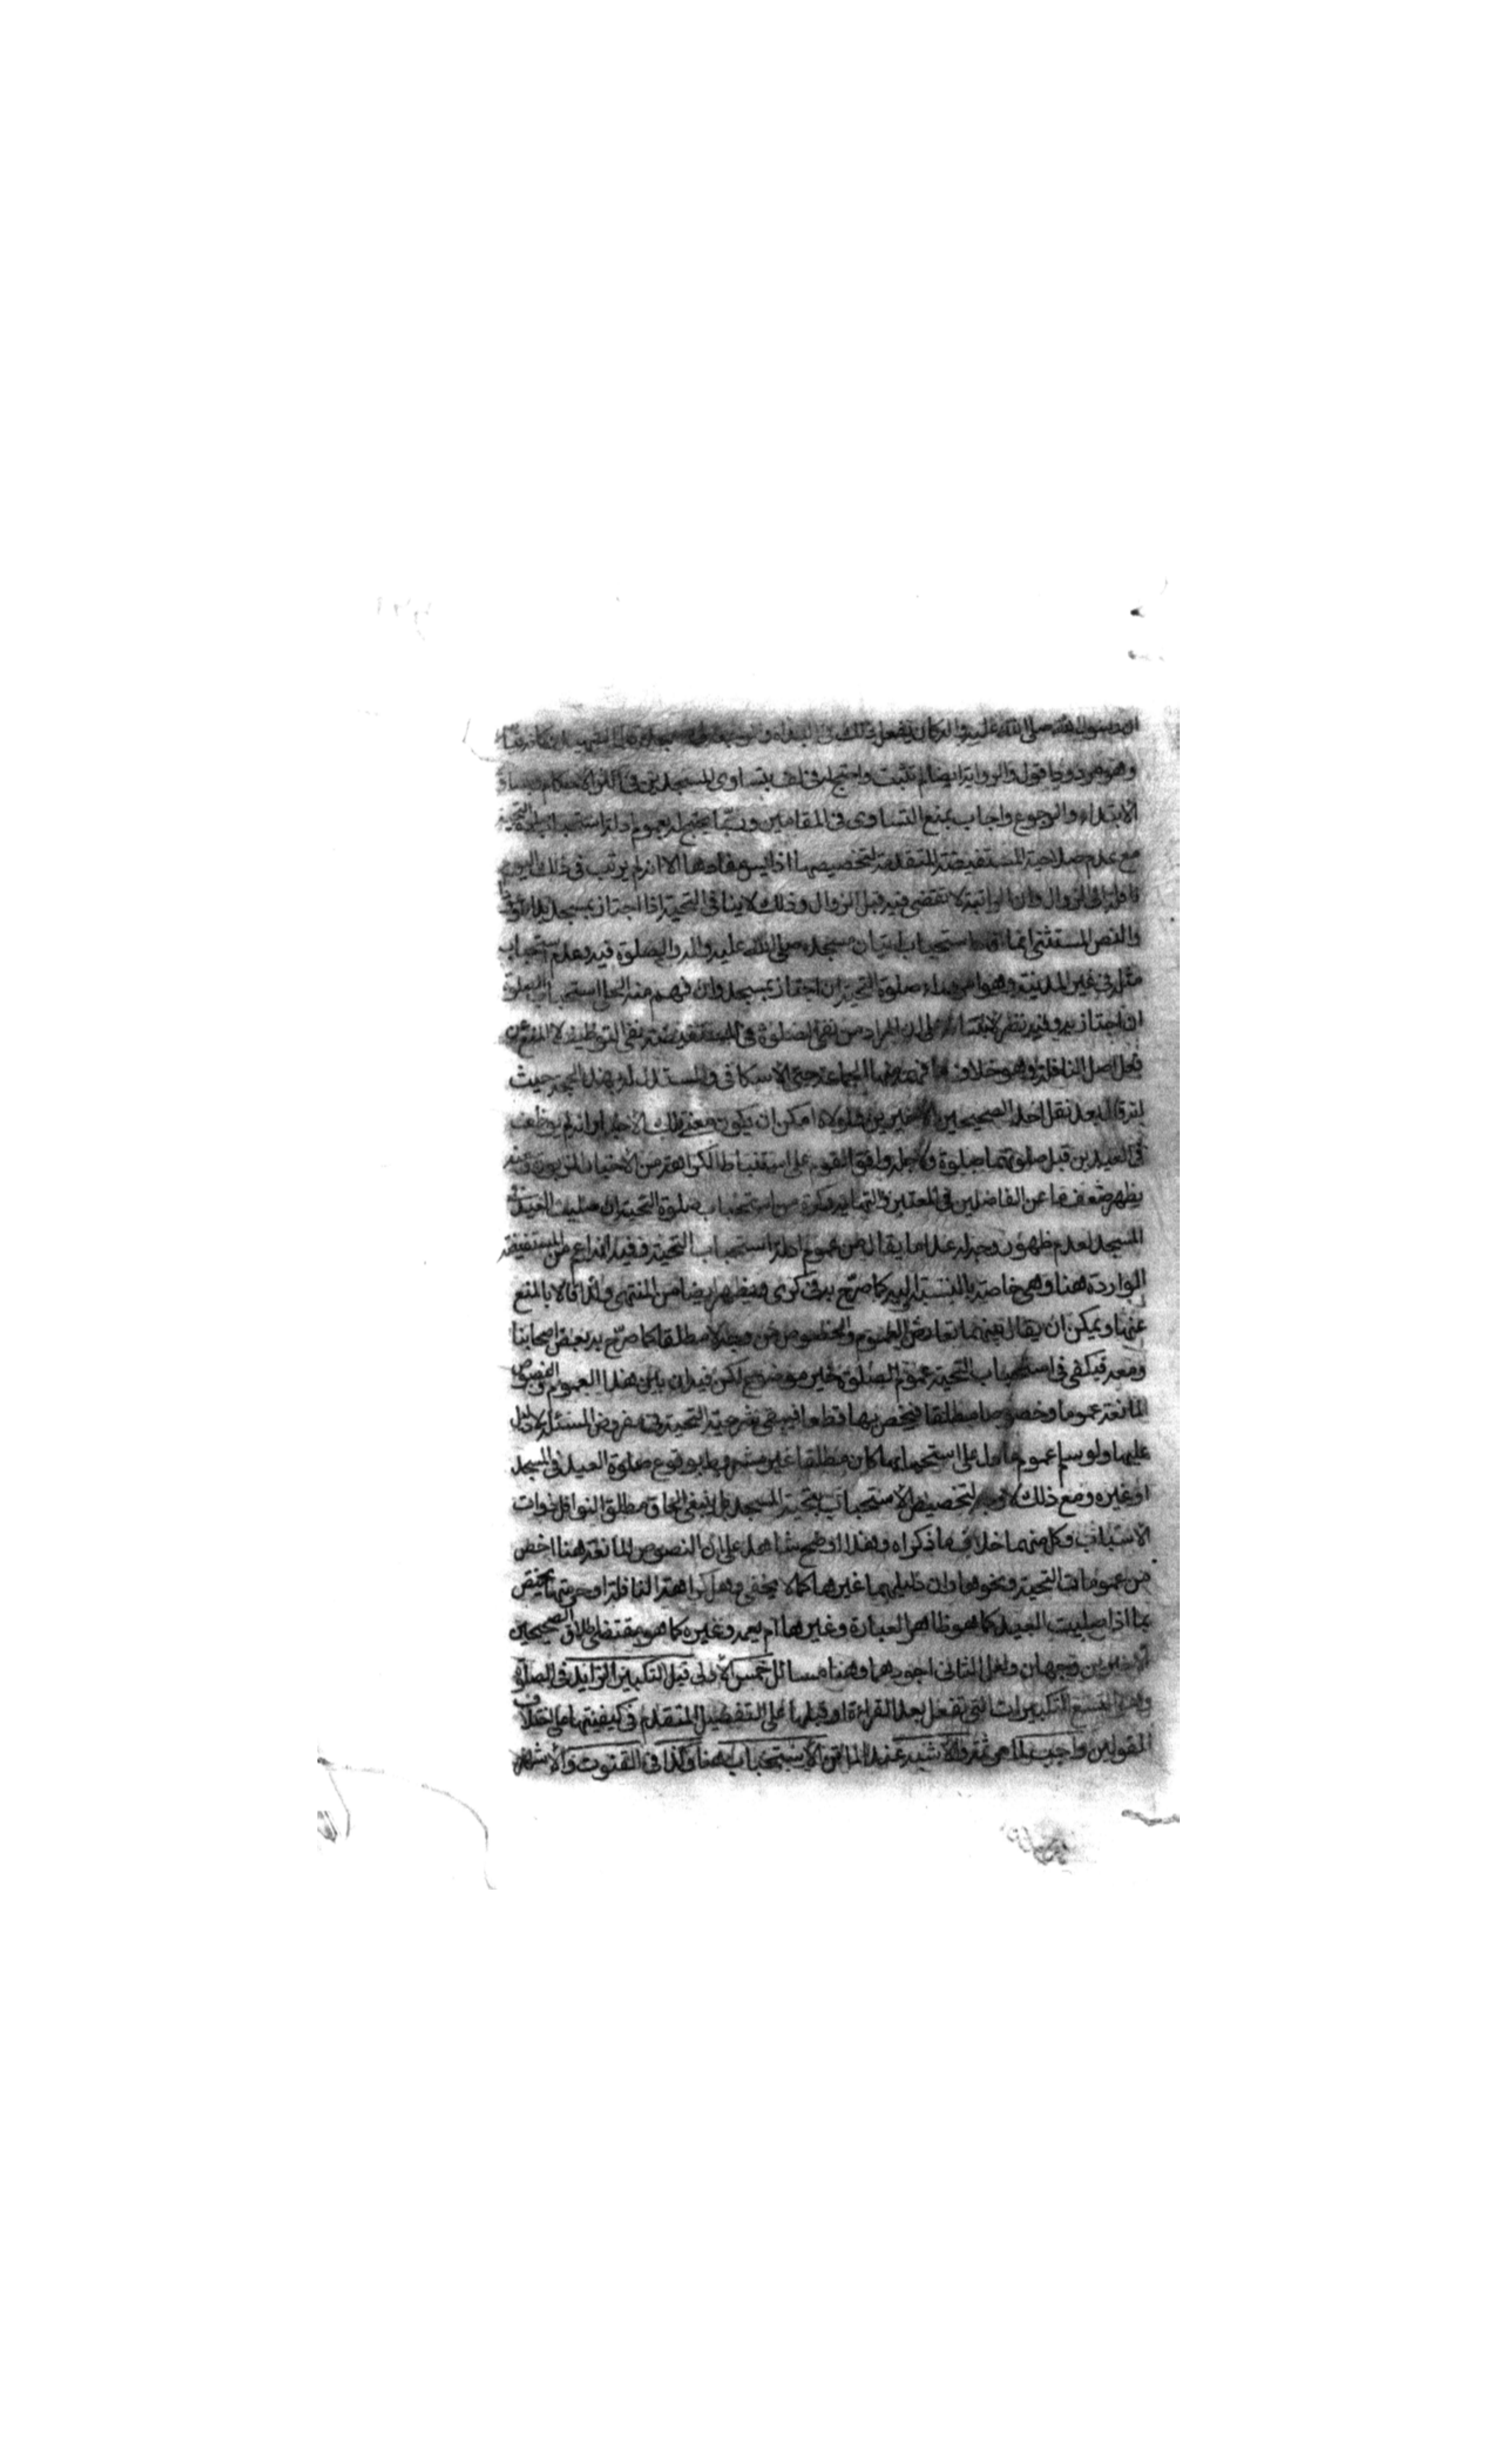 ان رسول الله صلى الله عليه وآله كان يفعل ذلك في البداة و
وهو مردود بما قول والرواية ايضا لم تثبت واحتج له في لف بتساوى المسجدين في اكثر الاحكام فيساوى
الابتداء والرجوع واجاب بمنع التساوى في المقامين وربما يحتج له بعموم ادلة استحباب التحية
مع عدم صلاحية المستفيضة المتقدمة لتخصيصها اذ ليس مفادها الا انه لم يرتب في ذلك اليوم
نافلة الى الزوال وان الراتبة لا تقضى فيه قبل الزوال وذلك لا ينافى التحية اذا اجتاز بمسجد
والنص المستثنى انما افاد استحباب اتيان مسجده صلى الله عليه وآله والصلوة فيه وعدم استحباب
مثله في غير المدينة وهو امر وراء صلوة التحية ان اجتاز بمسجد وان فهم منه الحلى استحباب الصلوة
اذا اجتاز به وفيه نظر لابتنائه على ان المراد من نفى الصلوة في المستفيضة نفى التوظيف لا المنع عن
فعل اصل النافلة وهو خلاف ما فهمه منها الجماعة حتى الاسكافى والمستدل له بهذه الحجة حيث
انه قال بعد نقل احد الصحيحين الاخيرين ولولاه امكن ان يكون معنى تلك الاخبار انه لم يوظف
في العيدين قبل صلوتهما صلوة ولاجله وافق القوم على استنباط الكراهة من الاخبار المزبورة ومنه
يظهر ضعف ما عن الفاضلين في المعتبر والنهاية وكرة من استحباب صلوة التحية ان صليت العيد في
المسجد لعدم ظهور وجه له عدا ما يقال من عموم ادلة استحباب التحية وفيه انه اعم من المستفيضة
الواردة هنا وهي خاصة بالنسبة اليه كما صرح به في كرى ويظهر ايضا من المنتهى ولذا قالا بالمنع
عنها ويمكن ان يقال بينهما تعارض العموم والخصوص من وجه لا مطلقا كما صرح به بعض اصحابنا
ومعه فيكفى في استحباب التحية عموم الصلوة خير موضوع لكن فيه ان بين هذا العموم والنصوص
المانعة عموما وخصوصا مطلقا فيخص بها قطعا فيبقى شرعية التحية في مفروض المسئلة لا دليل
عليها ولو سلم عموم ما دل على استحبابها كان مطلقا غير مشروط بوقوع صلوة العيد في المسجد
او غيره ومع ذلك لا وجه لتخصيص الاستحباب بتحية المسجد بل ينبغى الحاق مطلق النوافل ذوات
الاسباب وكل منهما خلاف ما ذكراه وهذا اوضح شاهد على ان النصوص المانعة هنا اخص
من عمومات التحية ونحوها وان دليلهما غيرها كما لا يخفى وهل كراهة النافلة او حرمتها يختص
بما اذا صليت العيد كما هو ظاهر العبارة وغيرها ام يعمه وغيره كما هو مقتضى اطلاق الصحيحين
الاخيرين وجهان ولعل الثانى اجودهما وهنا مسائل خمس الاولى قيل التكبير الزايد في الصلوة
وهو التسع التكبيرات التى تفعل بعد القراءة او قبلها على التفصيل المتقدم في كيفيتها على اختلاف
القولين واجب لما مر ثمة والاشبه عند الماتن الاستحباب هنا وكذا في القنوت والاشهر